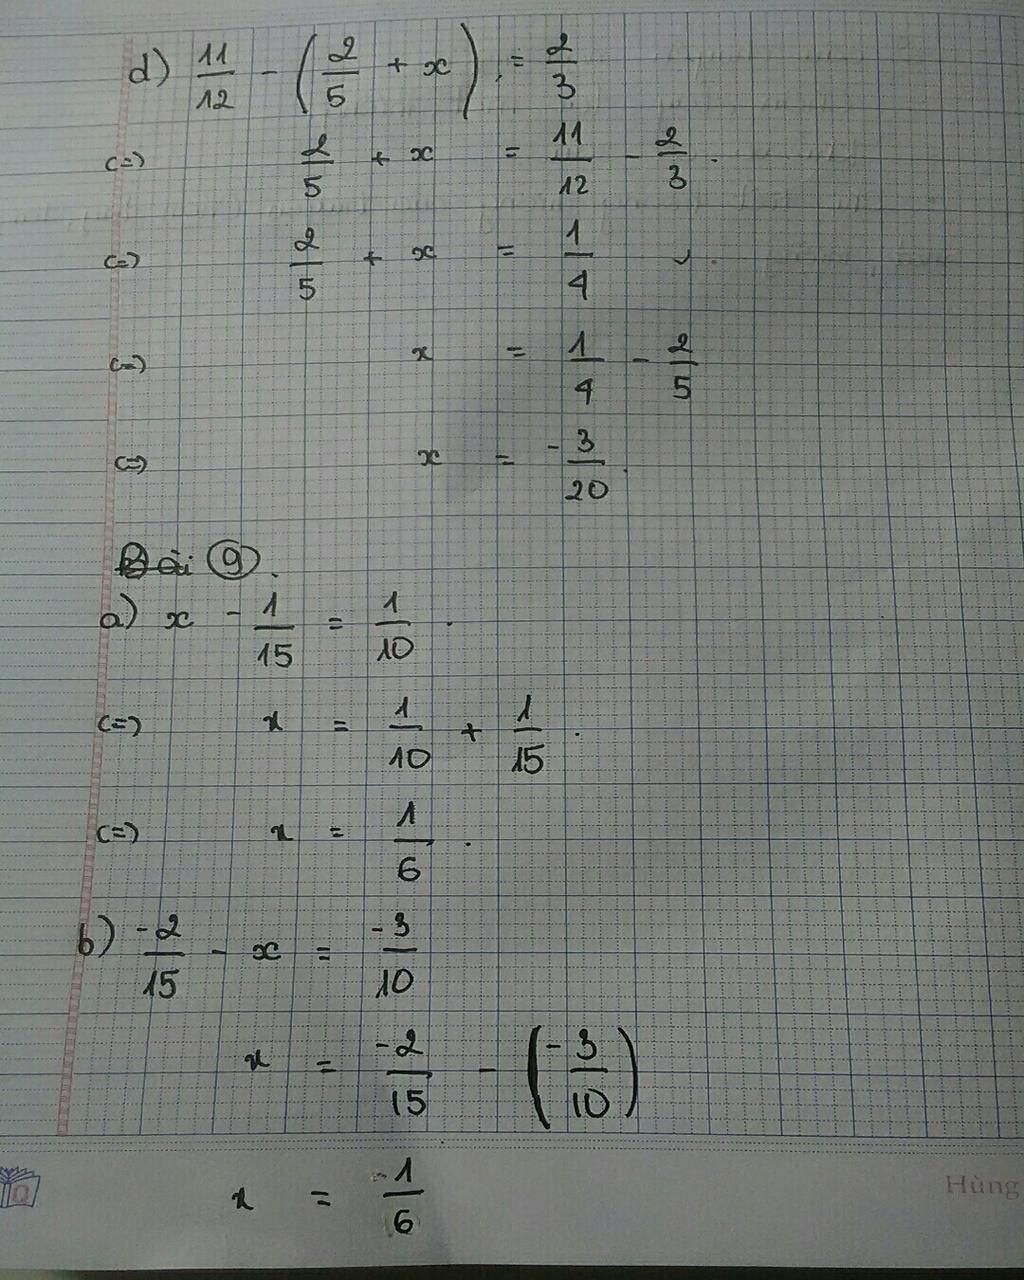 d) 11/12 - (2/5 + x) = 2/3
<=> 2/5 + x = 11/12 - 2/3.
<=> 2/5 + x = 1/4
<=> x = 1/4 - 2/5
<=> x = -3/20.
Bài 9.
a) x - 1/15 = 1/10.
<=> x = 1/10 + 1/15.
<=> x = 1/6.
b) -2/15 - x = -3/10
x = -2/15 - (-3/10)
x = -1/6
Hùng